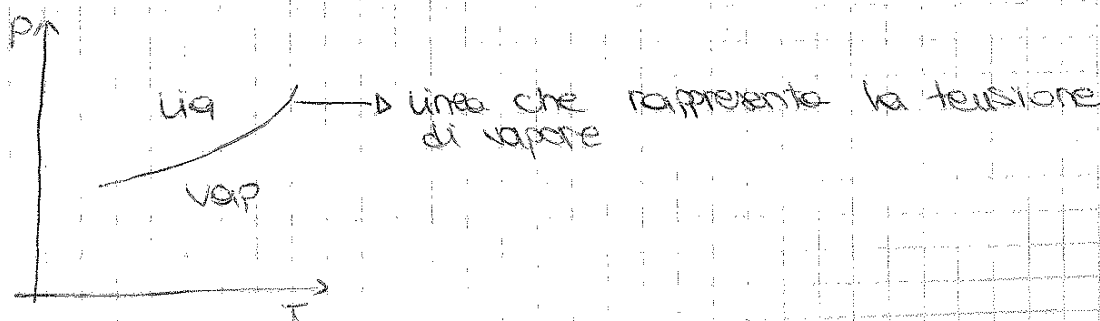 P
Liq
linea che rappresenta la tensione
di vapore
vap
T